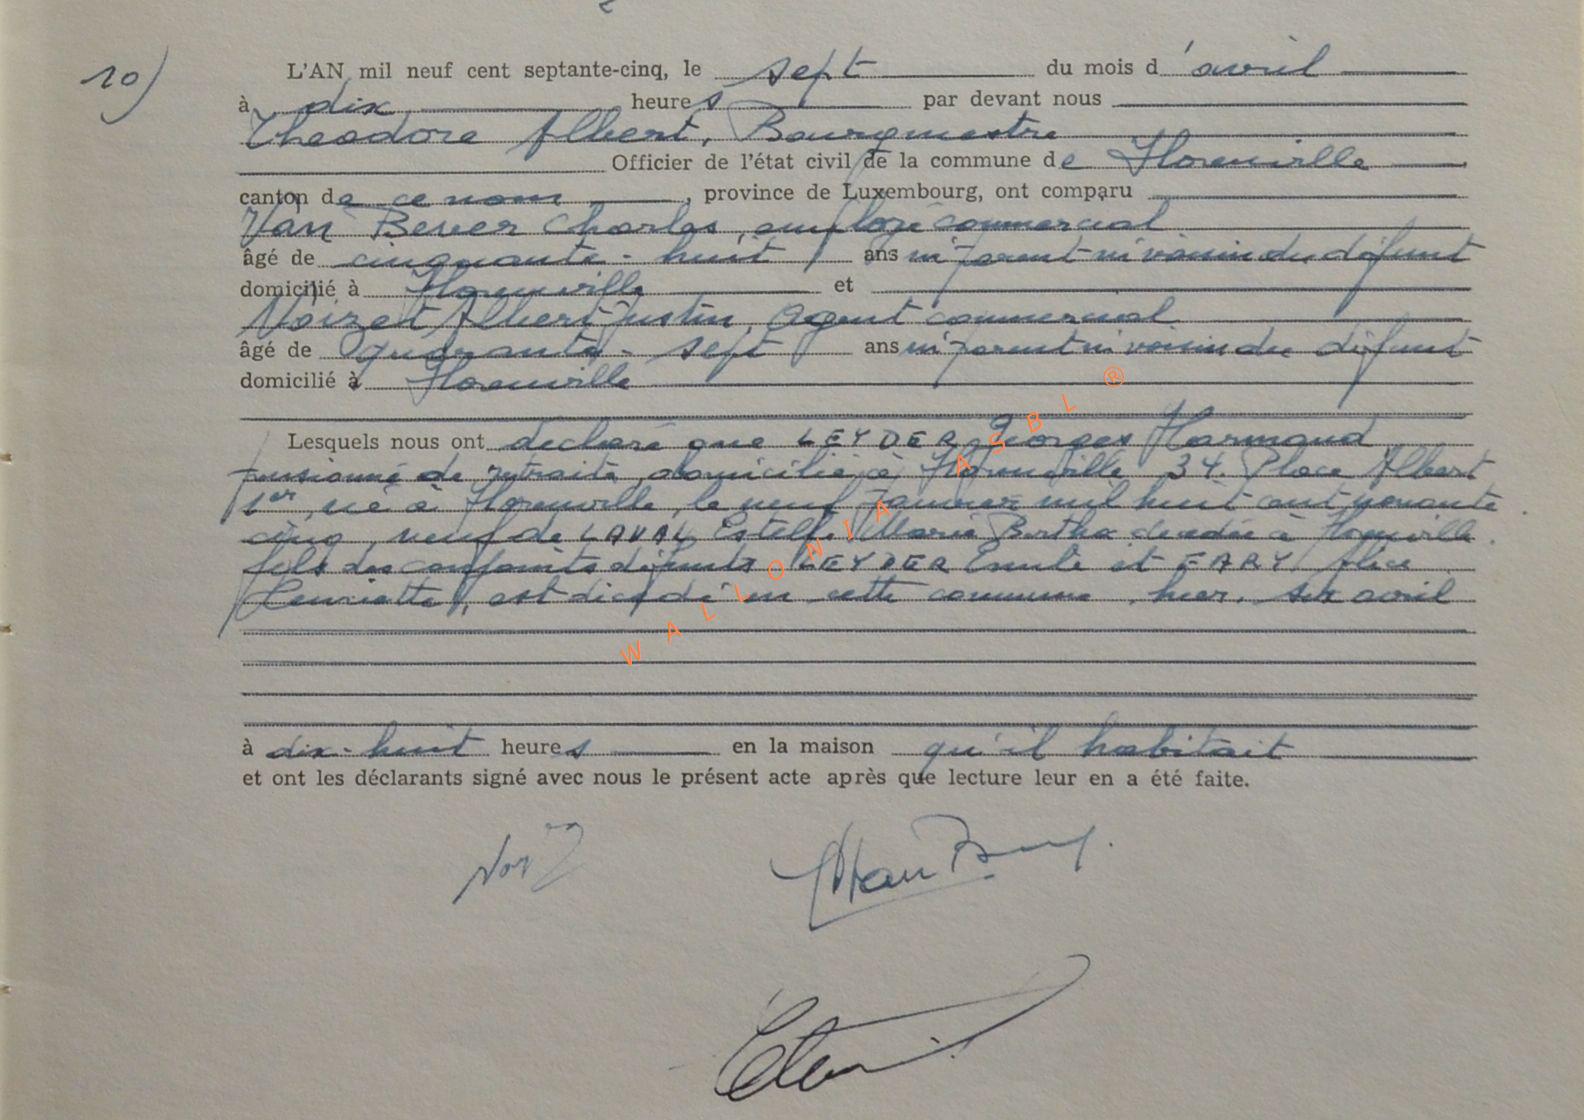 10)
L'AN mil neuf cent septante-cinq, le sept du mois d'avril
à dix heures par devant nous
Théodore Albert, Bourgmestre
Officier de l'état civil de la commune de Florenville
canton de ce nom, province de Luxembourg, ont comparu
Van Bever Charles, employé commercial
âgé de cinquante-huit ans ni parent ni voisin du défunt
domicilié à Florenville et
Noizet Albert Justin, Agent commercial
âgé de quarante-sept ans ni parent ni voisin du défunt
domicilié à Florenville
Lesquels nous ont déclaré que LEYDER Georges Harmand
pensionné de retraite, domicilié à Florenville 34, Place Albert
1er, né à Florenville, le neuf janvier mil huit cent nonante
cinq, veuf de LAVAL Estelle Marie Bertha décédée à Florenville.
fils des conjoints défunts LEYDER Emile et FARY Alice
Henriette, est décédé en cette commune, hier, six avril
à dix-huit heures en la maison qu'il habitait
et ont les déclarants signé avec nous le présent acte après que lecture leur en a été faite.
WALLONIA ASBL ®